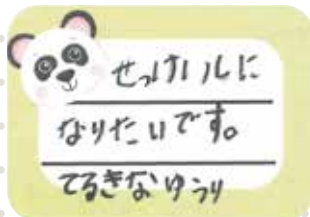 せっけいしに
なりたいです。
てるきなゆうり